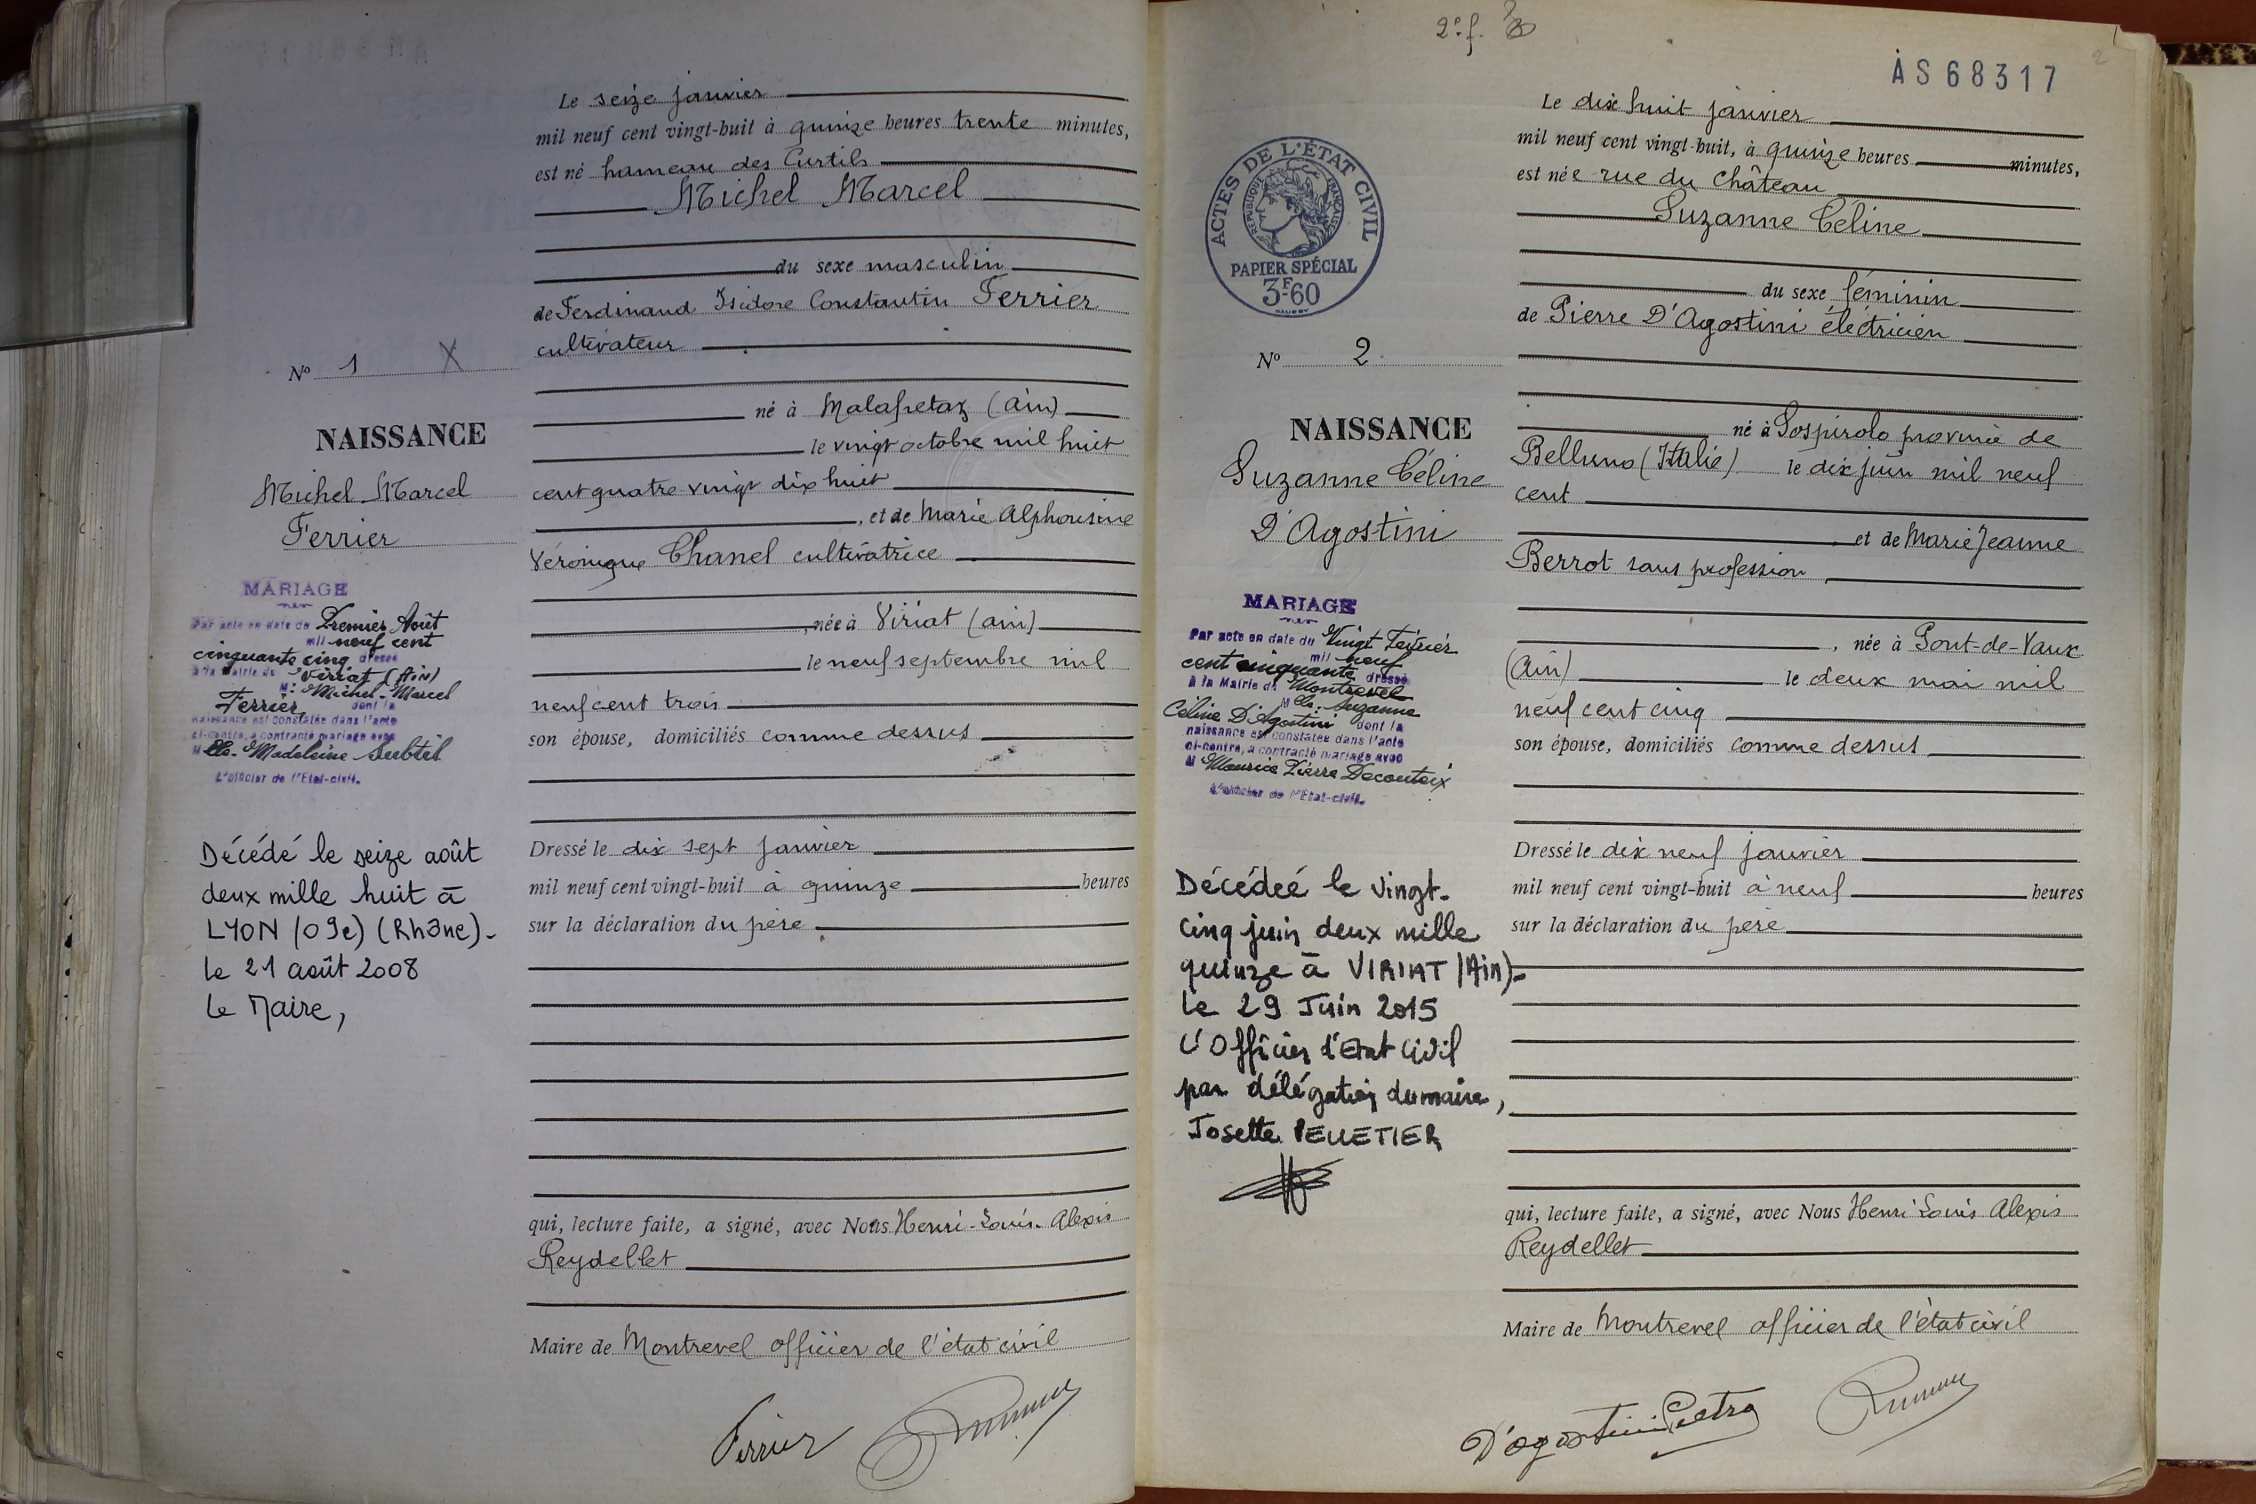 Le seize janvier
mil neuf cent vingt-huit à quinze heures trente minutes,
est né hameau des Curtils
Michel Marcel
du sexe masculin
de Ferdinand Isidore Constantin Ferrier
cultivateur
né à Malafretaz (Ain)
le vingt octobre mil huit
cent quatre vingt dix huit
, et de Marie Alphonsine
Véronique Chanel cultivatrice
, née à Viriat (ain)
le neuf septembre mil
neuf cent trois
son épouse, domiciliés comme dessus
Dressé le dix sept janvier
mil neuf cent vingt-huit à quinze heures
sur la déclaration du père
qui, lecture faite, a signé, avec Nous Henri-Louis-Alexis
Reydellet
Maire de Montrevel officier de l'état civil
Ferrier
Nº 1 X
NAISSANCE
Michel Marcel
Ferrier
MARIAGE
Par acte en date du Premier Août
mil neuf cent
cinquante cinq dressé
à la Mairie de Viriat (Ain)
M: Michel-Marcel
Ferrier dont la
naissance est constatée dans l'acte
ci-contre, a contracté mariage avec
M lle. Madeleine Subtil
L'officier de l'Etat-civil.
Décédé le seize août
deux mille huit à
LYON (09e) (Rhône)-
le 21 août 2008
Le Maire,
2e. f.
AS 68317
2
ACTES DE L'ÉTAT CIVIL
RÉPUBLIQUE FRANÇAISE
PAPIER SPÉCIAL
3F60
Le dix huit janvier
mil neuf cent vingt-huit, à quinze heures minutes,
est née rue du Château
Suzanne Céline
du sexe féminin
de Pierre D'Agostini électricien
né à Sospirolo province de
Belluno (Italie) le dix juin mil neuf
cent
, et de Marie Jeanne
Berrot sans profession
, née à Pont-de-Vaux
(Ain) le deux mai mil
neuf cent cinq
son épouse, domiciliés comme dessus
Dressé le dix neuf janvier
mil neuf cent vingt-huit à neuf heures
sur la déclaration du père
qui, lecture faite, a signé, avec Nous Henri Louis Alexis
Reydellet
Maire de Montrevel officier de l'état civil
D'agostini Pietro
Nº 2
NAISSANCE
Suzanne Céline
D'Agostini
MARIAGE
Par acte en date du Vingt Février
mil neuf
cent cinquante dressé
à la Mairie de Montrevel
M lle: Suzanne
Céline D'Agostini dont la
naissance est constatée dans l'acte
ci-contre, a contracté mariage avec
M Maurice Pierre Decouteix
L'officier de l'Etat-civil.
Décédée le vingt-
cinq juin deux mille
quinze à VIRIAT (Ain)-
Le 29 Juin 2015
L'Officier d'Etat Civil
par délégation du maire,
Josette PELLETIER